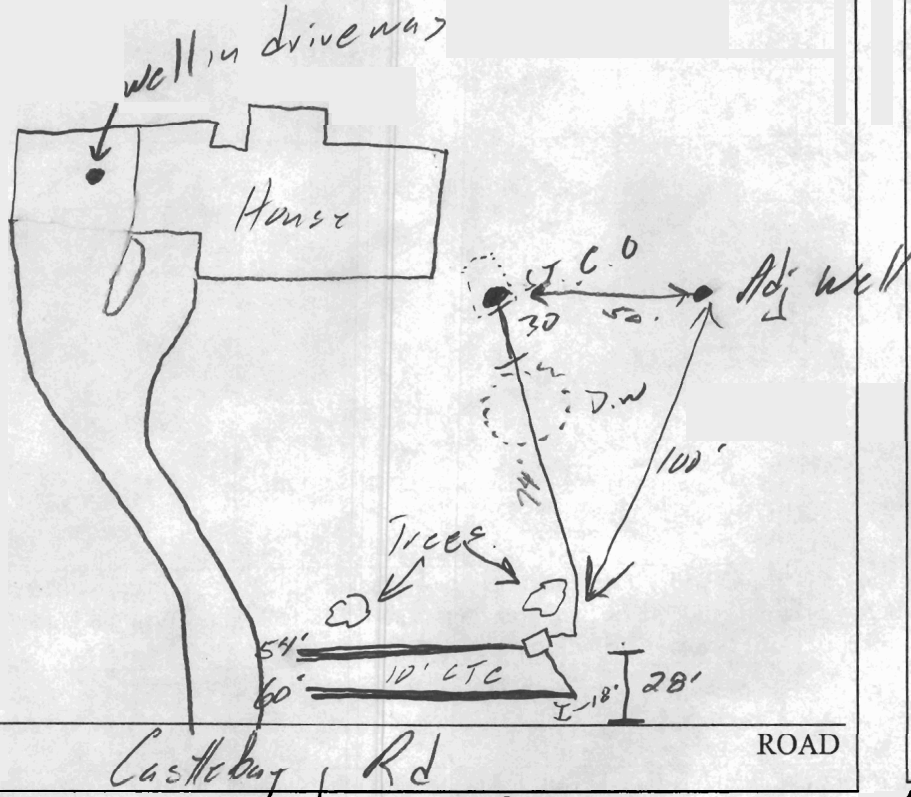 well in driveway
House
C.O
30
50.
Adj Well
D.W
74'
100'
Trees.
54'
10' CTC
60'
I-18'
28'
ROAD
Castlebay Rd